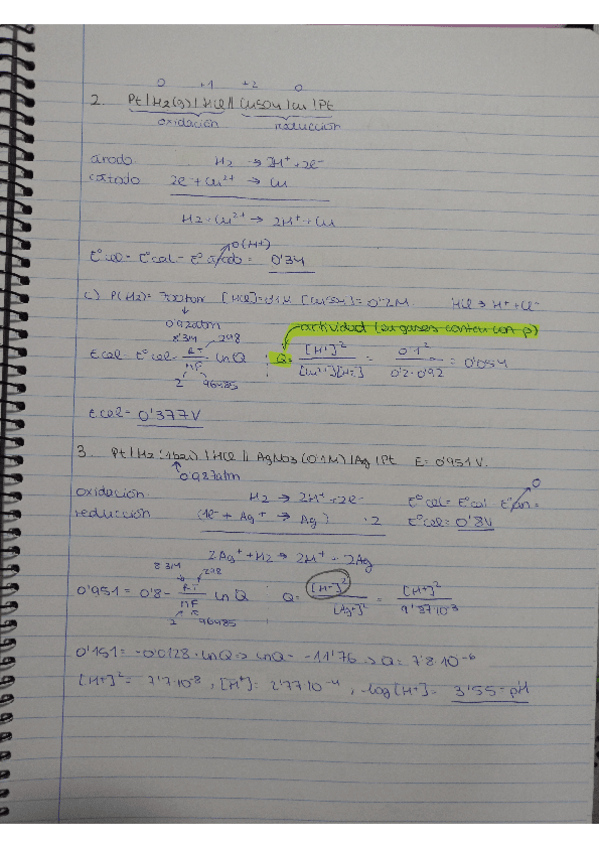 0 +1 +2 0
2. Pt | H2(g) | HCl || CuSO4 | Cu | Pt
oxidación reducción
ánodo H2 → 2H+ + 2e-
cátodo 2e- + Cu2+ → Cu
H2 + Cu2+ → 2H+ + Cu
0 (H+)
E°cel = E°cat - E°ánodo = 0'34
c) P(H2) = [HCl] = 0'1M [CuSO4] = 0'2M. HCl → H+ + Cl-
0'92atm
actividad (en gases contar con p)
8'314 298
Ecel = E°cel - RT/nF ln Q ; Q = [H+]²/[Cu2+][H2] = 0'1²/0'2·0'92 = 0'054
2 96485
Ecel = 0'377V
3. Pt | H2 (1bar) | HCl || AgNO3 (0'1M) | Ag | Pt E = 0'951V.
0'987atm
oxidación H2 → 2H+ + 2e- E°cel = E°cat - E°án = 0
reducción (1e- + Ag+ → Ag) ·2 E°cel = 0'8V
2Ag+ + H2 → 2H+ + 2Ag
8'314 298
0'951 = 0'8 - RT/nF ln Q ; Q = [H+]²/[Ag+]² = [H+]²/9'87·10-3
2 96485
0'151 = -0'0128 · lnQ → lnQ = -11'76 → Q = 7'8·10-6
[H+]² = 7'7·10-8, [H+] = 2'77·10-4, -log[H+] = 3'55 = pH